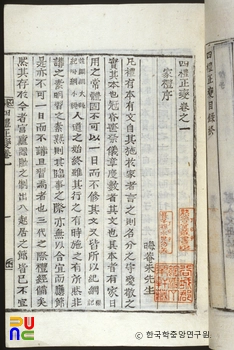 四禮正變目錄終
四禮正變卷之一
家禮序
晦菴朱先生
凡禮有本有文自其施於家者言之則名分之守愛敬之
實其本也冠昏喪祭儀章度數者其文也其本者有家日
用之常體固不可以一日而不修其文又皆所以紀綱
人道之始終雖其行之有時施之有所然非
講之素明習之素熟則其臨事之際亦無以合宜而應節
是亦不可一日而不講且習焉者也三代之際禮經備矣
然其存於今者宮廬器服之制出入起居之節皆已不宜
四禮正變卷一
© 한국학중앙연구원